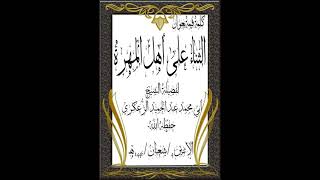 كلمة قيمة بعنوان
الثناء على أهل المهرة
لفضيلة الشيخ
أبي محمد عبد الحميد الزعكري
حفظه الله-
الإثنين / شعبان /